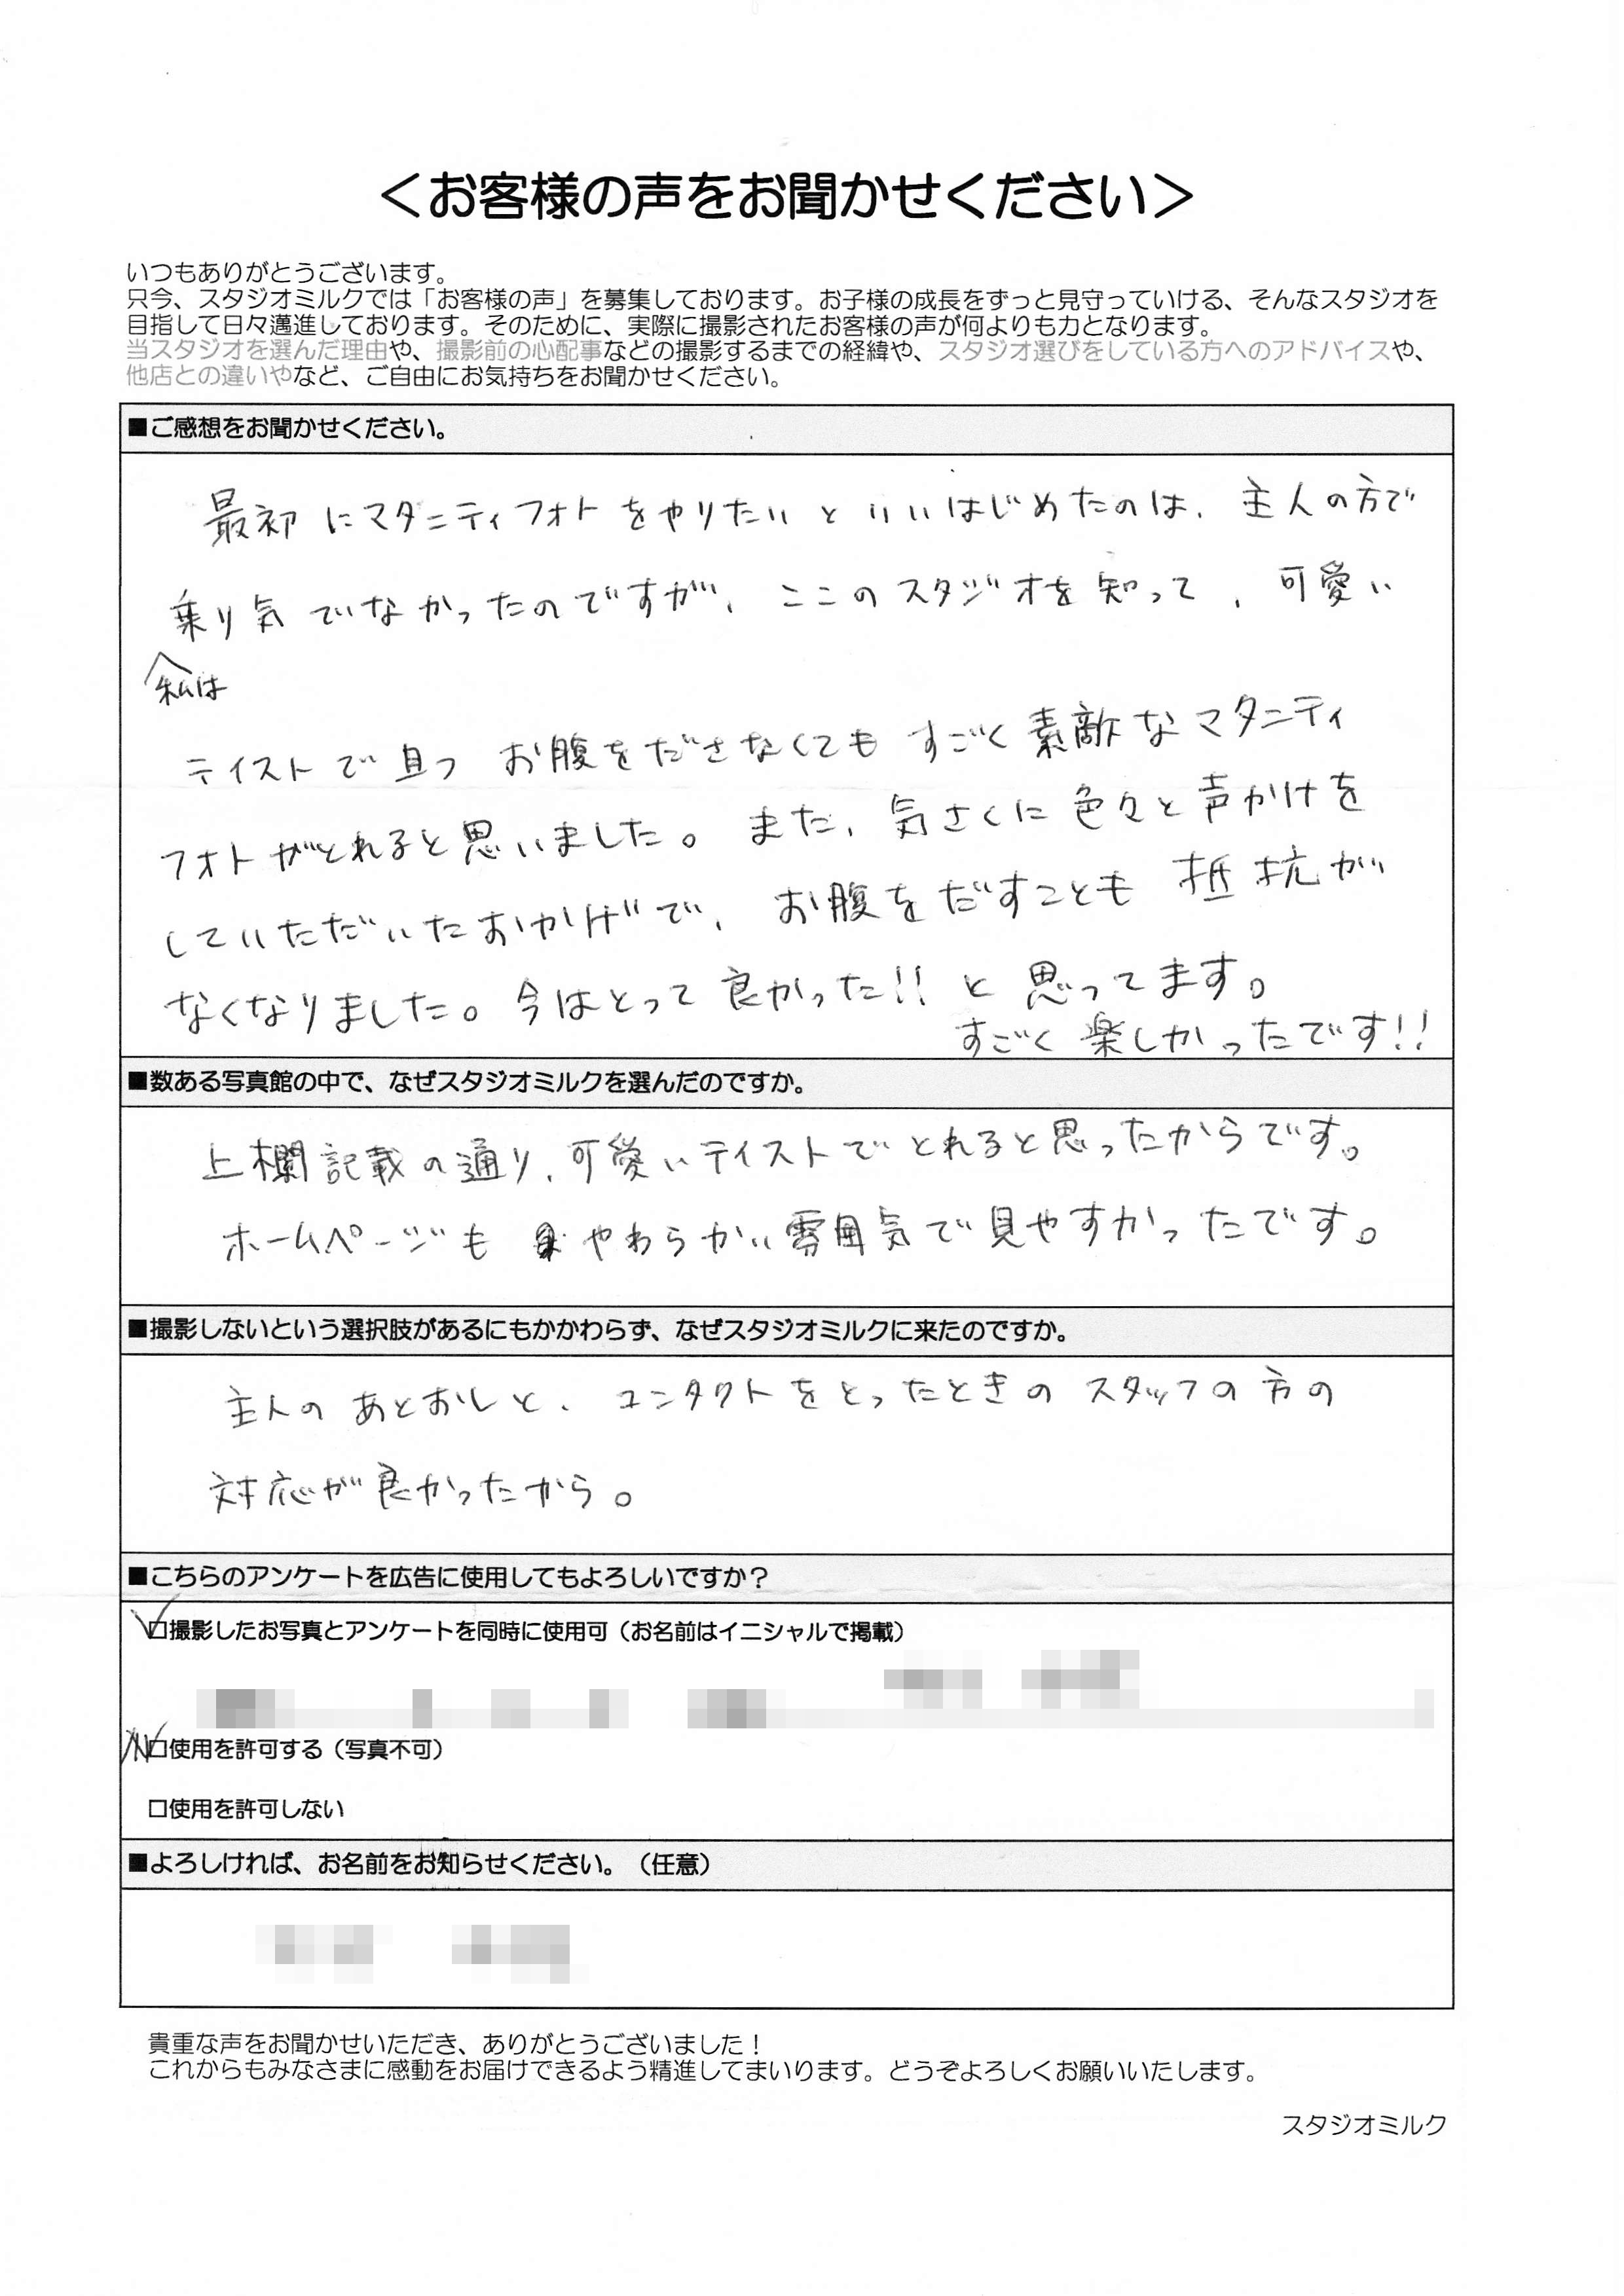 ＜お客様の声をお聞かせください＞
いつもありがとうございます。
只今、スタジオミルクでは「お客様の声」を募集しております。お子様の成長をずっと見守っていける、そんなスタジオを
目指して日々邁進しております。そのために、実際に撮影されたお客様の声が何よりも力となります。
当スタジオを選んだ理由や、撮影前の心配事などの撮影するまでの経緯や、スタジオ選びをしている方へのアドバイスや、
他店との違いやなど、ご自由にお気持ちをお聞かせください。
■ご感想をお聞かせください。
最初にマタニティフォトをやりたいといいはじめたのは、主人の方で
乗り気でなかったのですが、ここのスタジオを知って、可愛い
私は
テイストで且つお腹をださなくてもすごく素敵なマタニティ
フォトがとれると思いました。また、気さくに色々と声かけを
していただいたおかげで、お腹をだすことも抵抗が
なくなりました。今はとって良かった!!と思ってます。
すごく楽しかったです!!
■数ある写真館の中で、なぜスタジオミルクを選んだのですか。
上欄記載の通り、可愛いテイストでとれると思ったからです。
ホームページもやわらかい雰囲気で見やすかったです。
■撮影しないという選択肢があるにもかかわらず、なぜスタジオミルクに来たのですか。
主人のあとおしと、コンタクトをとったときのスタッフの方の
対応が良かったから。
■こちらのアンケートを広告に使用してもよろしいですか？
☑撮影したお写真とアンケートを同時に使用可（お名前はイニシャルで掲載）
□使用を許可する（写真不可）
□使用を許可しない
■よろしければ、お名前をお知らせください。（任意）
貴重な声をお聞かせいただき、ありがとうございました！
これからもみなさまに感動をお届けできるよう精進してまいります。どうぞよろしくお願いいたします。
スタジオミルク